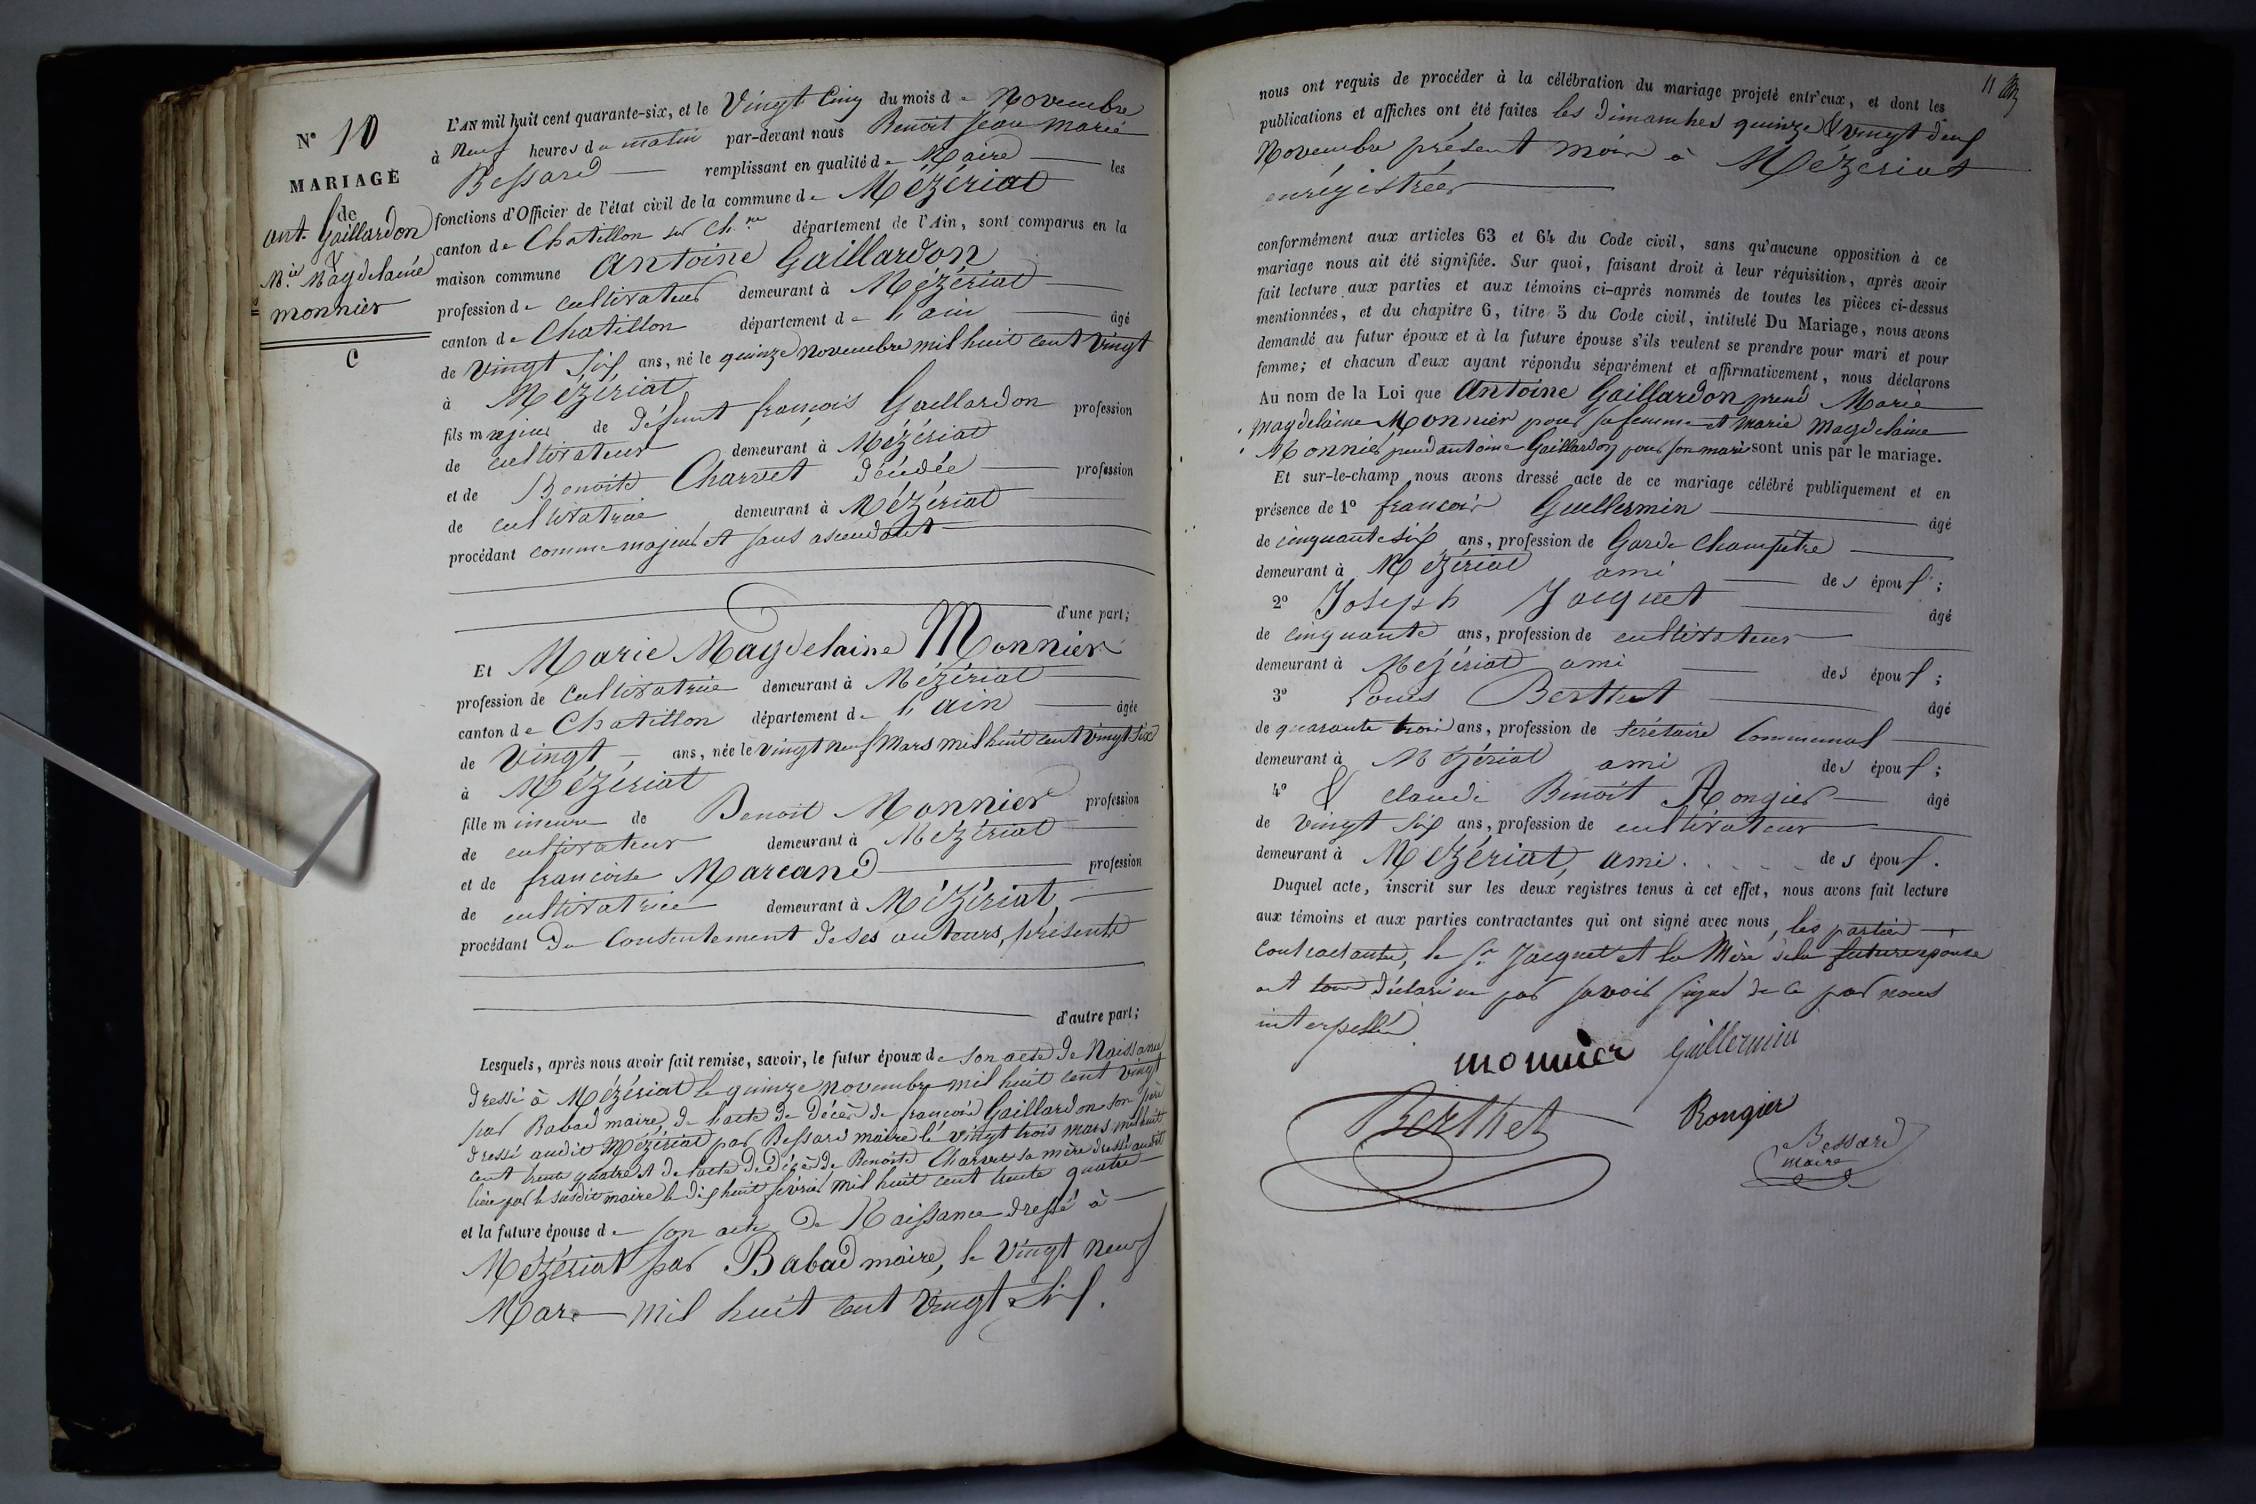 N° 10
MARIAGE
de
ant. Gaillardon
&
M.ie Magdelaine
monnier
C
L'AN mil huit cent quarante-six, et le Vingt Cinq du mois de Novembre
à Neuf heures du matin par-devant nous Benoit Jean Marie
Bessard remplissant en qualité de Maire les
fonctions d'Officier de l'état civil de la commune de Mézériat
canton de Chatillon sur Ch.ne département de l'Ain, sont comparus en la
maison commune Antoine Gaillardon
profession de cultivateur demeurant à Mézériat
canton de Chatillon département de l'ain âgé
de Vingt six ans, né le quinze novembre mil huit cent Vingt
à Mézériat
fils majeur de défunt françois Gaillardon profession
de cultivateur demeurant à Mézériat
et de Benoite Charvet décédée profession
de cultivatrice demeurant à Mézériat
procédant comme majeur et sans ascendant
d'une part;
Et Marie Magdelaine Monnier
profession de Cultivatrice demeurant à Mézériat
canton de Chatillon département de l'ain âgée
de Vingt ans, née le vingt neuf Mars mil huit cent vingt six
à Mézériat
fille mineure de Benoit Monnier profession
de cultivateur demeurant à Mézériat
et de françoise Marcand profession
de cultivatrice demeurant à Mézériat,
procédant Du Consentement de ses auteurs, présents
d'autre part;
Lesquels, après nous avoir fait remise, savoir, le futur époux de son acte de Naissance
dressé à Mézériat le quinze novembre mil huit cent vingt
par Babad maire, de l'acte de décès de françois Gaillardon son père
dressé audit Mézériat par Bessard maire le vingt trois mars mil huit
cent trente quatre et de l'acte de Décès de Benoite Charvet sa mère dressé audit
lieu par le susdit maire le dix huit février mil huit cent trente quatre
et la future épouse de son acte de Naissance dressé à
Mézériat par Babad maire, le Vingt neuf
Mars mil huit cent Vingt Six.
11
nous ont requis de procéder à la célébration du mariage projeté entr'eux, et dont les
publications et affiches ont été faites les dimanches quinze & vingt deux
Novembre présent mois à Mézériat
enrégistrées
conformément aux articles 63 et 64 du Code civil, sans qu'aucune opposition à ce
mariage nous ait été signifiée. Sur quoi, faisant droit à leur réquisition, après avoir
fait lecture aux parties et aux témoins ci-après nommés de toutes les pièces ci-dessus
mentionnées, et du chapitre 6, titre 5 du Code civil, intitulé Du Mariage, nous avons
demandé au futur époux et à la future épouse s'ils veulent se prendre pour mari et pour
femme; et chacun d'eux ayant répondu séparément et affirmativement, nous déclarons
Au nom de la Loi que Antoine Gaillardon prend Marie
Magdelaine Monnier pour sa femme et Marie Magdelaine
Monnier prend antoine Gaillardon pour son mari sont unis par le mariage.
Et sur-le-champ nous avons dressé acte de ce mariage célébré publiquement et en
présence de 1° françois Guillermin âgé
de cinquante six ans, profession de Garde Champêtre
demeurant à Mézériat ami des époux;
2° Joseph Jacquet âgé
de cinquante ans, profession de cultivateur
demeurant à Mézériat ami des époux;
3° Louis Berthet âgé
de quarante trois ans, profession de Secrétaire Communal
demeurant à Mézériat ami des époux;
4° & claude Benoit Rongier âgé
de vingt six ans, profession de cultivateur
demeurant à Mézériat, ami des époux.
Duquel acte, inscrit sur les deux registres tenus à cet effet, nous avons fait lecture
aux témoins et aux parties contractantes qui ont signé avec nous, les parties
contractantes, le Sr. Jacquet et la Mère de la future épouse
ont tous déclaré ne pas savoir signer de ce par nous
interpellés.
monnier Guillermin
Berthet Rongier
Bessard
maire